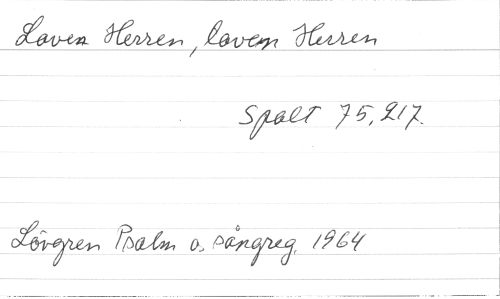 Loven Herren, loven Herren
Spalt 75, 217.
Lövgren Psalm o. sångreg. 1964